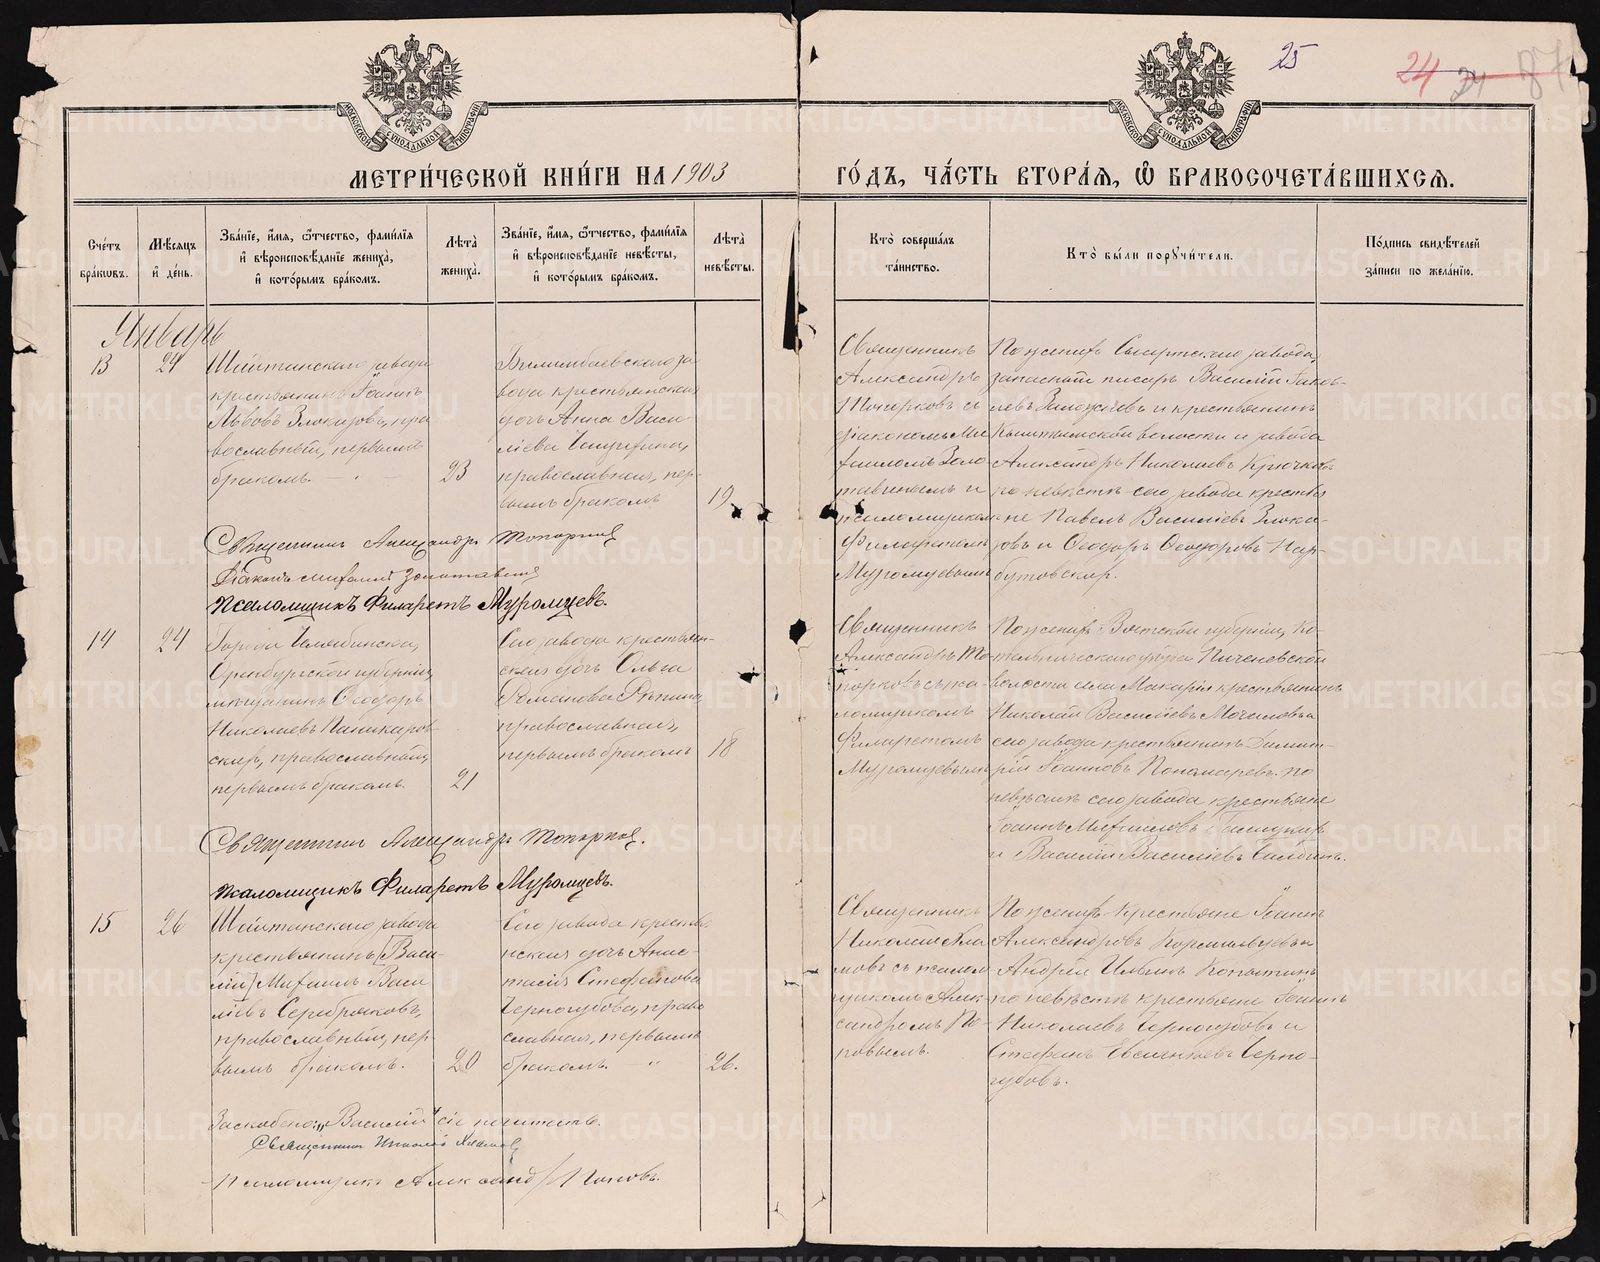 25
24
24
87
МОСКОВСКОЙ СѴНОДАЛЬНОЙ ТИПОГРАФІИ
МОСКОВСКОЙ СѴНОДАЛЬНОЙ ТИПОГРАФІИ
МЕТРИ́ЧЕСКОЙ КНИ́ГИ НА 1903 ГО́ДЪ, ЧА́СТЬ ВТОРА́Я, Ѡ БРАКОСОЧЕТА́ВШИХСЯ.
Сче́тъ
бра́кѡвъ.
Мѣ́сяцъ
и҆ де́нь.
Зва́нїе, и҆́мя, ѻ҆́тчество, фами́лїя
и҆ вѣроисповѣ́данїе жениха̀,
и҆ кото́рымъ бра́комъ.
Лѣ́та
жениха̀.
Зва́нїе, и҆́мя, ѻ҆́тчество, фами́лїя
и҆ вѣроисповѣ́данїе невѣ́сты,
и҆ кото́рымъ бра́комъ.
Лѣ́та
невѣ́сты.
Кто̀ соверша́лъ
та́инство.
Кто̀ бы́ли порꙋчи́тели.
По́дпись свидѣ́телей
за́писи по жела́нїю.
Январь
13
24
Шайтанскаго завода
крестьянинъ Іоаннъ
Львовъ Злоказовъ, пра
вославный, первымъ
бракомъ.
23
Билимбаевскаго за
вода крестьянская
дочь Анна Васи
ліева
православная, пер-
вымъ бракомъ
19
Священникъ
Александръ
Топорковъ съ
діакономъ Ми
хаиломъ Золо
тавинымъ и
псаломщикомъ
Филаретомъ
Муромцевымъ
По женихѣ Сысертскаго завода
запасный писарь Василій Іаков-
левъ и крестьянинъ
Кыштымской волости и завода
Александръ Николаевъ Крючковъ
по невѣстѣ сего завода крестья
не Павелъ Василіевъ Злока-
зовъ и Ѳеодоръ Ѳеодоровъ Нар-
бутовскир.
Священникъ Александръ Топорковъ
Діаконъ Михаилъ Золотавинъ
Псаломщикъ Филаретъ Муромцевъ.
14
24
Города Челябинска,
Оренбургской губерніи,
мѣщанинъ Ѳеодоръ
Николаевъ
православный,
первымъ бракомъ.
21
Сего завода крестьян-
ская дочь Ольга
Рѣпина,
православная,
первымъ бракомъ
18
Священникъ
Александръ То-
порковъ съ пса-
ломщикомъ
Филаретомъ
Муромцевымъ
По женихѣ Вятской губерніи, Ко-
тельническаго уѣзда
волости села Макарія крестьянинъ
Николай Василіевъ
сего завода крестьянинъ Димит-
рій Іоанновъ Пономаревъ. по
невѣстѣ сего завода крестьяне
Іоаннъ Михаиловъ
и Василій Василіевъ
Священникъ Александръ Топорковъ.
Псаломщикъ Филаретъ Муромцевъ.
15
26
Шайтанскаго завода
крестьянинъ [Васи-
лій] Михаилъ Васи
ліевъ Серебряковъ,
православный, пер
вымъ бракомъ.
20
Сего завода крестья
нская дочь Анас-
тасія Стефанова
Черногубова, право
славная, первымъ
бракомъ.
26.
Священникъ
Николай Хла
мовъ съ псалом
щикомъ Алек-
сандромъ По-
повымъ.
По женихѣ крестьяне Іоаннъ
Александровъ
Андрей Ильинъ Копытинъ
по невѣстѣ крестьяне Іоаннъ
Николаевъ Черногубовъ и
Стефанъ Евсигнѣевъ Черно-
губовъ.
Заскоблено: „Василій“ сіе не читать.
Священникъ Николай Хламовъ
Псаломщикъ Александръ Поповъ.
METRIKI.GASO-URAL.RU